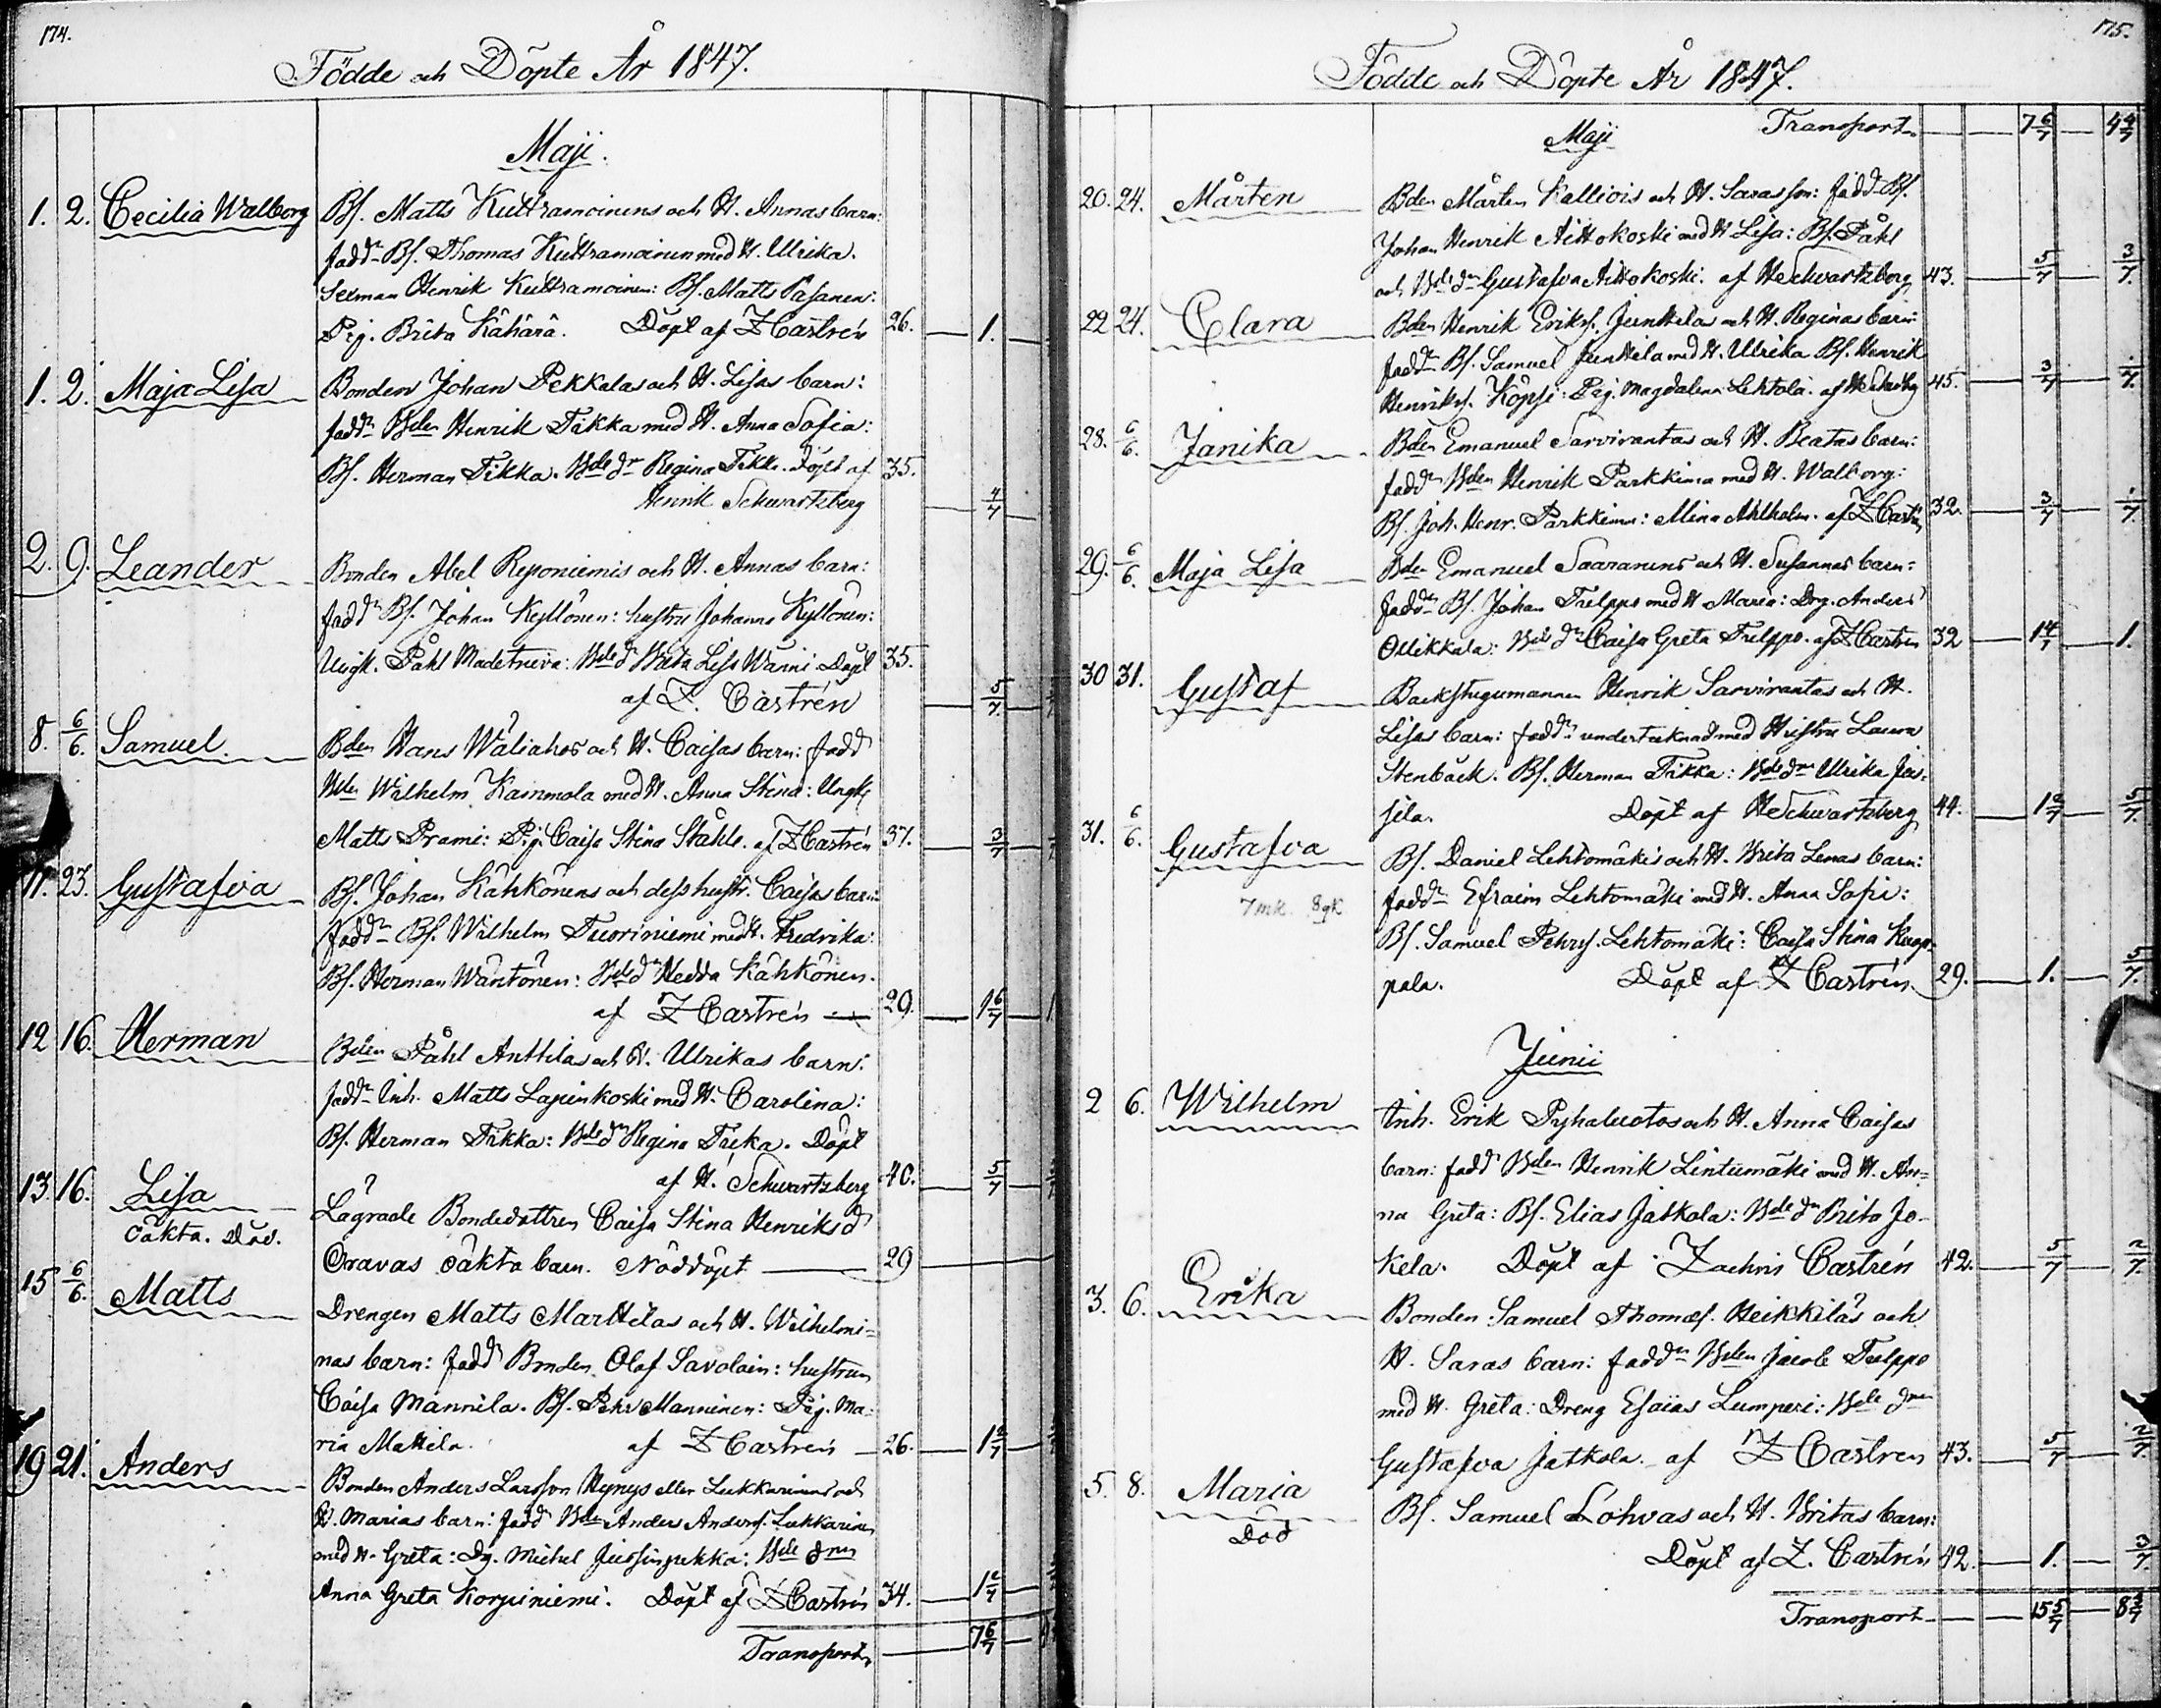 174.
Födde och Döpte År 1847.
Maji.
1. 2. Cecilia Walborg Bs. Matts Kuttramoinens och H. Annas barn:
fadd. Bs. Thomas Kuttramoinen med H. Ulrika.
Sexman Henrik Kuttramoinen: Bs. Matts Pasanen:
Pig. Brita Kähärä. Döpt af Z Castrén 26. 1.
1. 2. Maja Lisa Bonden Johan Pekkalas och H. Lisas barn:
fadd. Bden Henrik Tikka med H. Anna Sofia:
Bs. Herman Tikka. Bdedr Regina Tikka. Döpt af 35.
Henrik Schwartzberg 4/7
2. 9. Leander Bonden Abel Reponiemis och H. Annas barn:
fadd. Bs. Johan Kyllönen: hustru Johanna Kyllönen:
Ungk. Påhl Madetneva: Bdedr Brita Lisa Warni. Döpt 35.
af Z. Castrén 5/7
8. 6/6. Samuel. Bden Hans Wäliahos och H. Caisas barn: fadd
Bden Wilhelm Kammola med H. Anna Stina: Ungk
Matts Prami: Pig. Caisa Stina Ståhle. af Z Castrén 37. 3/7
11. 23. Gustafva Bs. Johan Kähkönens och dess hustr. Caisas barn:
fadd. Bs. Wilhelm Tuoriniemi med H. Fredrika:
Bs. Herman Wäntönen: Bded. Hedda Kähkönen.
af Z Castrén 29. 1 6/7
12 16. Herman Bden Påhl Anttilas och H. Ulrikas barn:
fadd. Inh. Matts Lapinkoski med H. Carolina:
Bs. Herman Tikka: Bdedr Regina Tikka. Döpt
af H. Schwartzberg 40. 5/7
13 16. Lisa Lägrade Bondedottren Caisa Stina Henriksd
oäkta. Död. Oravas oäkta barn. Nöddöpt 29
15 6/6. Matts Drengen Matts Marttilas och H. Wilhelmi=
nas barn: fadd. Bonden Olof Savolain: hustrun
Caisa Mannila. Bs. Pehr Manninen: Pig. Ma=
ria Mattila. af Z Castrén 26. 1 2/7
19 21. Anders Bonden Anders Larsson Hynys eller Lukkarinens och
H. Marias barn: fadd Bden Anders Anders. Lukkarinen
med H. Greta: Dg. Michel Jussinpekka: Bdedrn
Anna Greta Korpiniemi. Döpt af Z Castrén 34. 1 2/7
Transport, 7 6/7
175.
Födde och Döpte År 1847.
Maji Transport. 7 6/7 4 4/7
20. 24. Mårten Bden Mårten Kalliois och H. Saras son: fadd. Bs.
Johan Henrik Aittokoski med H Lisa: Bs. Påhl
och Bdedn Gustafva Aittokoski. af HSchwartzberg 43. 5/7 3/7.
22 24. Clara Bden Henrik Eriks. Junttilas och H. Reginas barn:
fadd. Bs. Samuel Junttila med H. Ulrika Bs. Henrik
Henriks. Köpsi: Pig. Magdalena Lehtola. af H Schwbg 45. 3/7 1/7.
28. 6/6. Janika Bden Emanuel Sarvirantas och H. Beatas barn:
fadd. Bden Henrik Parkkima med H. Walborg:
Bs. Joh. Henr. Parkkima: Mina Ahlholm. af Z Castrén 32. 3/7 1/7.
29. 6/6. Maja Lisa Bden Emanuel Saaranens och H. Susannas barn:
fadd. Bs. Johan Tulppo med H Maria: Drg. Anders
Ollikkala: Bdedr Caisa Greta Tulppo. af Z Castren 32 1 4/7 1.
30 31. Gustaf Backstugumannen Henrik Sarvirantas och H.
Lisas barn: fadd. undertecknad med Hustru Laura
Stenbäck. Bs. Herman Tikka: Bdedn Ulrika Jus-
sila. Döpt af HSchwartzberg 44. 1 2/7 5/7.
31. 6/6. Gustafva Bs. Daniel Lehtomäkis och H. Brita Lenas barn:
7mk. 8gk fadd. Efraim Lehtomäki med H. Anna Sofi:
Bs. Samuel Pehrs. Lehtomäki: Caisa Stina Kump-
pala. Döpt af Z Castrén 29. 1. 5/7.
Junii
2 6. Wilhelm Inh. Erik Pyhaluotos och H. Anna Caisas
barn: fadd Bden Henrik Lintumäki med H. An=
na Greta: Bs. Elias Jatkola: Bdedn Brita Jo-
kela. Döpt af Zachris Castrén 42. 5/7 2/7.
3. 6. Erika Bonden Samuel Thomæs. Heikkiläs och
H. Saras barn: fadd. Bden Jacob Tulppo
med H. Greta: Dreng Esaias Lumperi: Bdedrn
Gustafva Jatkola. af Z Castren 43. 5/7 2/7.
5. 8. Maria Bs. Samuel Lohvas och H. Britas barn:
Död Döpt af Z. Castrén 42. 1. 3/7.
Transport 15 5/7 8 2/7